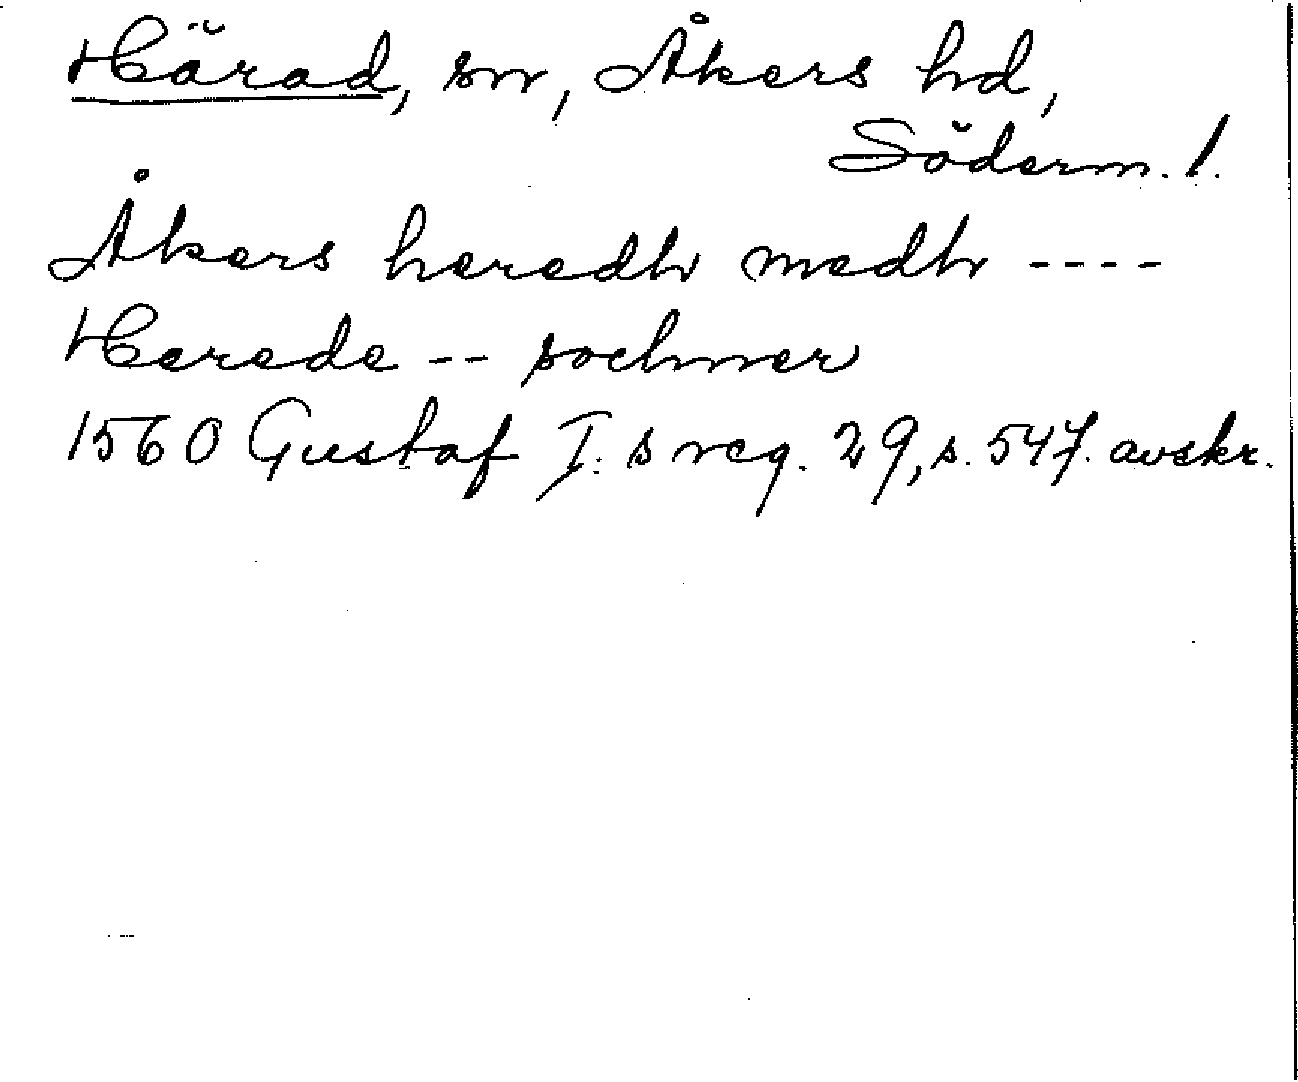 Härad, sn, Åkers hd,
Söderm. l.
Åkers heredh medh ----
Herede -- sochner
1560 Gustaf I:s reg. 29, s. 547. avskr.